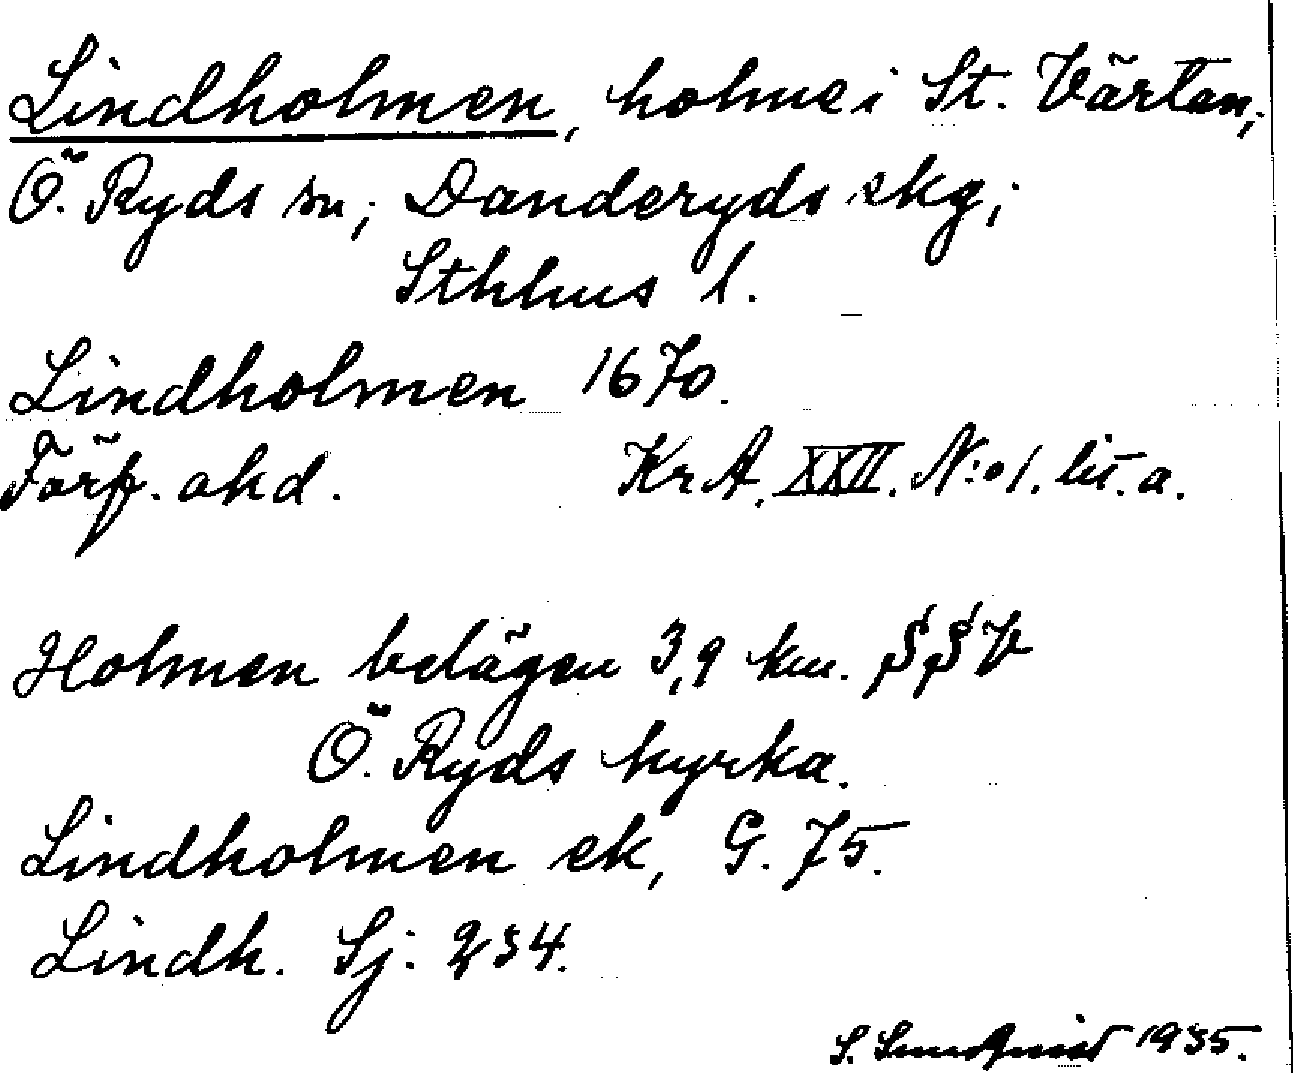 Lindholmen, holme i St. Värtan,
Ö. Ryds sn; Danderyds skg;
Sthlms l.
Lindholmen 1670.
Förf. okd. Kr A. XXII. N:o 1. lit. a.
Holmen belägen 3,9 km. SSV
Ö. Ryds kyrka.
Lindholmen ek, G. 75.
Lindh. Sj: 234.
S. Sundqvist 1935.